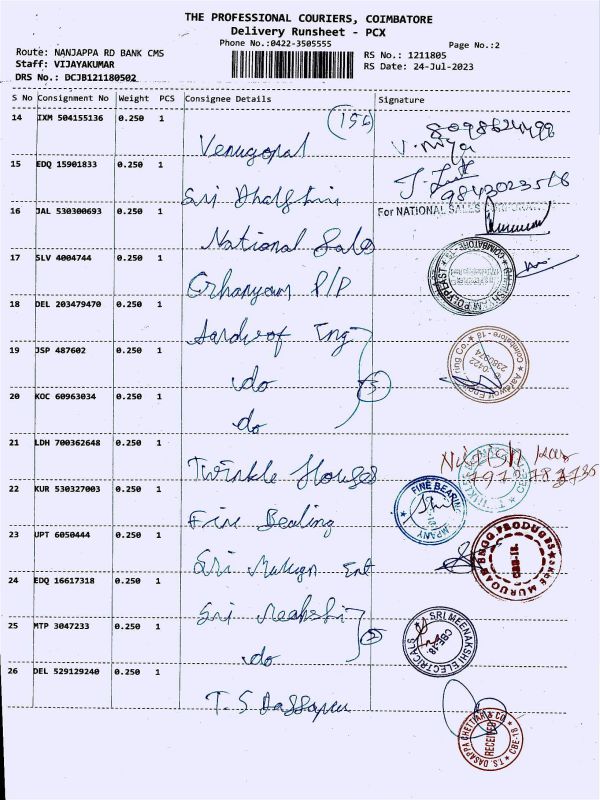 THE PROFESSIONAL COURIERS, COIMBATORE
Delivery Runsheet - PCX
Phone No.:0422-3505555
Page No.:2
Route: NANJAPPA RD BANK CMS
Staff: VIJAYAKUMAR
DRS No.: DCJB121180502
RS No.: 1211805
RS Date: 24-Jul-2023
S No Consignment No Weight PCS Consignee Details Signature
14 IXM 504155136 0.250 1 (156)
Venugopal
V. Priya
15 EDQ 15901833 0.250 1
Sri
16 JAL 530300693 0.250 1
For NATIONAL SALES CORPORATION
National Sales
17 SLV 4004744 0.250 1
COIMBATORE
POLYPLAST
P/P
18 DEL 203479470 0.250 1
Aardwof Eng
19 JSP 487602 0.250 1
do
3
Coimbatore - 18
0422
2380974
20 KOC 60963034 0.250 1
do
21 LDH 700362648 0.250 1
Twinkle House
22 KUR 530327003 0.250 1
FINE BEARING COMPANY
Fine Bearing
23 UPT 6050444 0.250 1
Sri Murugan Ent
SREE MURUGAN ENGG PRODUCTS
CBE-18.
24 EDQ 16617318 0.250 1
Sri Meenakshi
25 MTP 3047233 0.250 1
do
2
SRI MEENAKSHI ELECTRICALS
CBE-18
26 DEL 529129240 0.250 1
T. S. Dassapen
T.S. DASAPPA CHETTIAR & CO.
CBE-18
RECEIVED